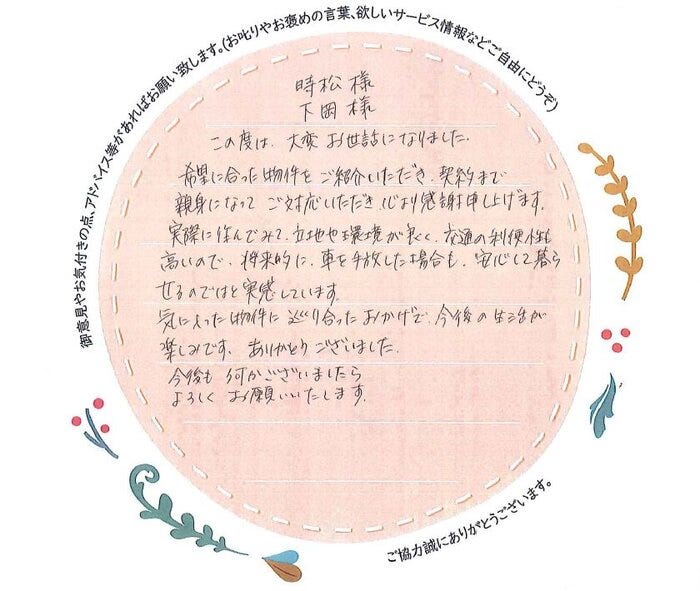 御意見やお気付きの点、アドバイス等があればお願い致します。(お叱りやお褒めの言葉、欲しいサービス情報などご自由にどうぞ)
時松 様
下岡 様
この度は、大変 お世話になりました。
希望に合った物件を ご紹介いただき、契約まで
親身になって ご対応いただき、心より感謝申し上げます。
実際に住んでみて、立地や環境が良く、交通の利便性も
高いので、将来的に、車を手放した場合も、安心して暮ら
せるのではと実感しています。
気に入った物件に 巡り合ったおかげで、今後の生活が
楽しみです。ありがとうございました。
今後も 何かございましたら
よろしく お願いいたします。
ご協力誠にありがとうございます。